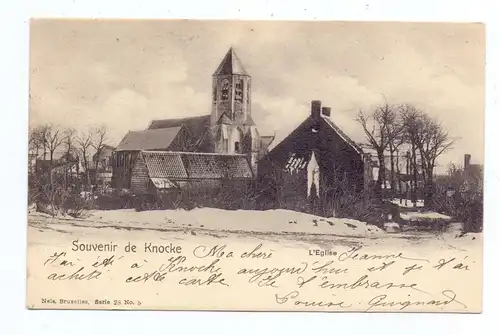 Souvenir de Knocke
L'Eglise
Ma chère Jeanne
J'ai été à Knocke aujourd'hui et je t'ai
acheté cette carte. Je t'embrasse
Louise
Nels, Bruxelles, Serie 28 No. 9